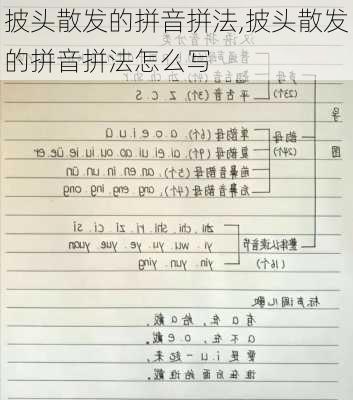 披头散发的拼音拼法,披头散发
的拼音拼法怎么写
声母
(23个)
平舌音(3个) z c s
单韵母(6个) a o e i u ü
韵母
复韵母(9个) ai ei ui ao ou iu ie üe er
(24个)
前鼻韵母(5个) an en in un ün
后鼻韵母(4个) ang eng ing ong
zhi chi shi ri zi ci si
整体认读音节
yi wu yu ye yue yuan
(16个)
yin yun ying
标声调儿歌
有a在,给a戴,
a不在,o e戴
要是i u一起来,
谁在后面给谁戴。